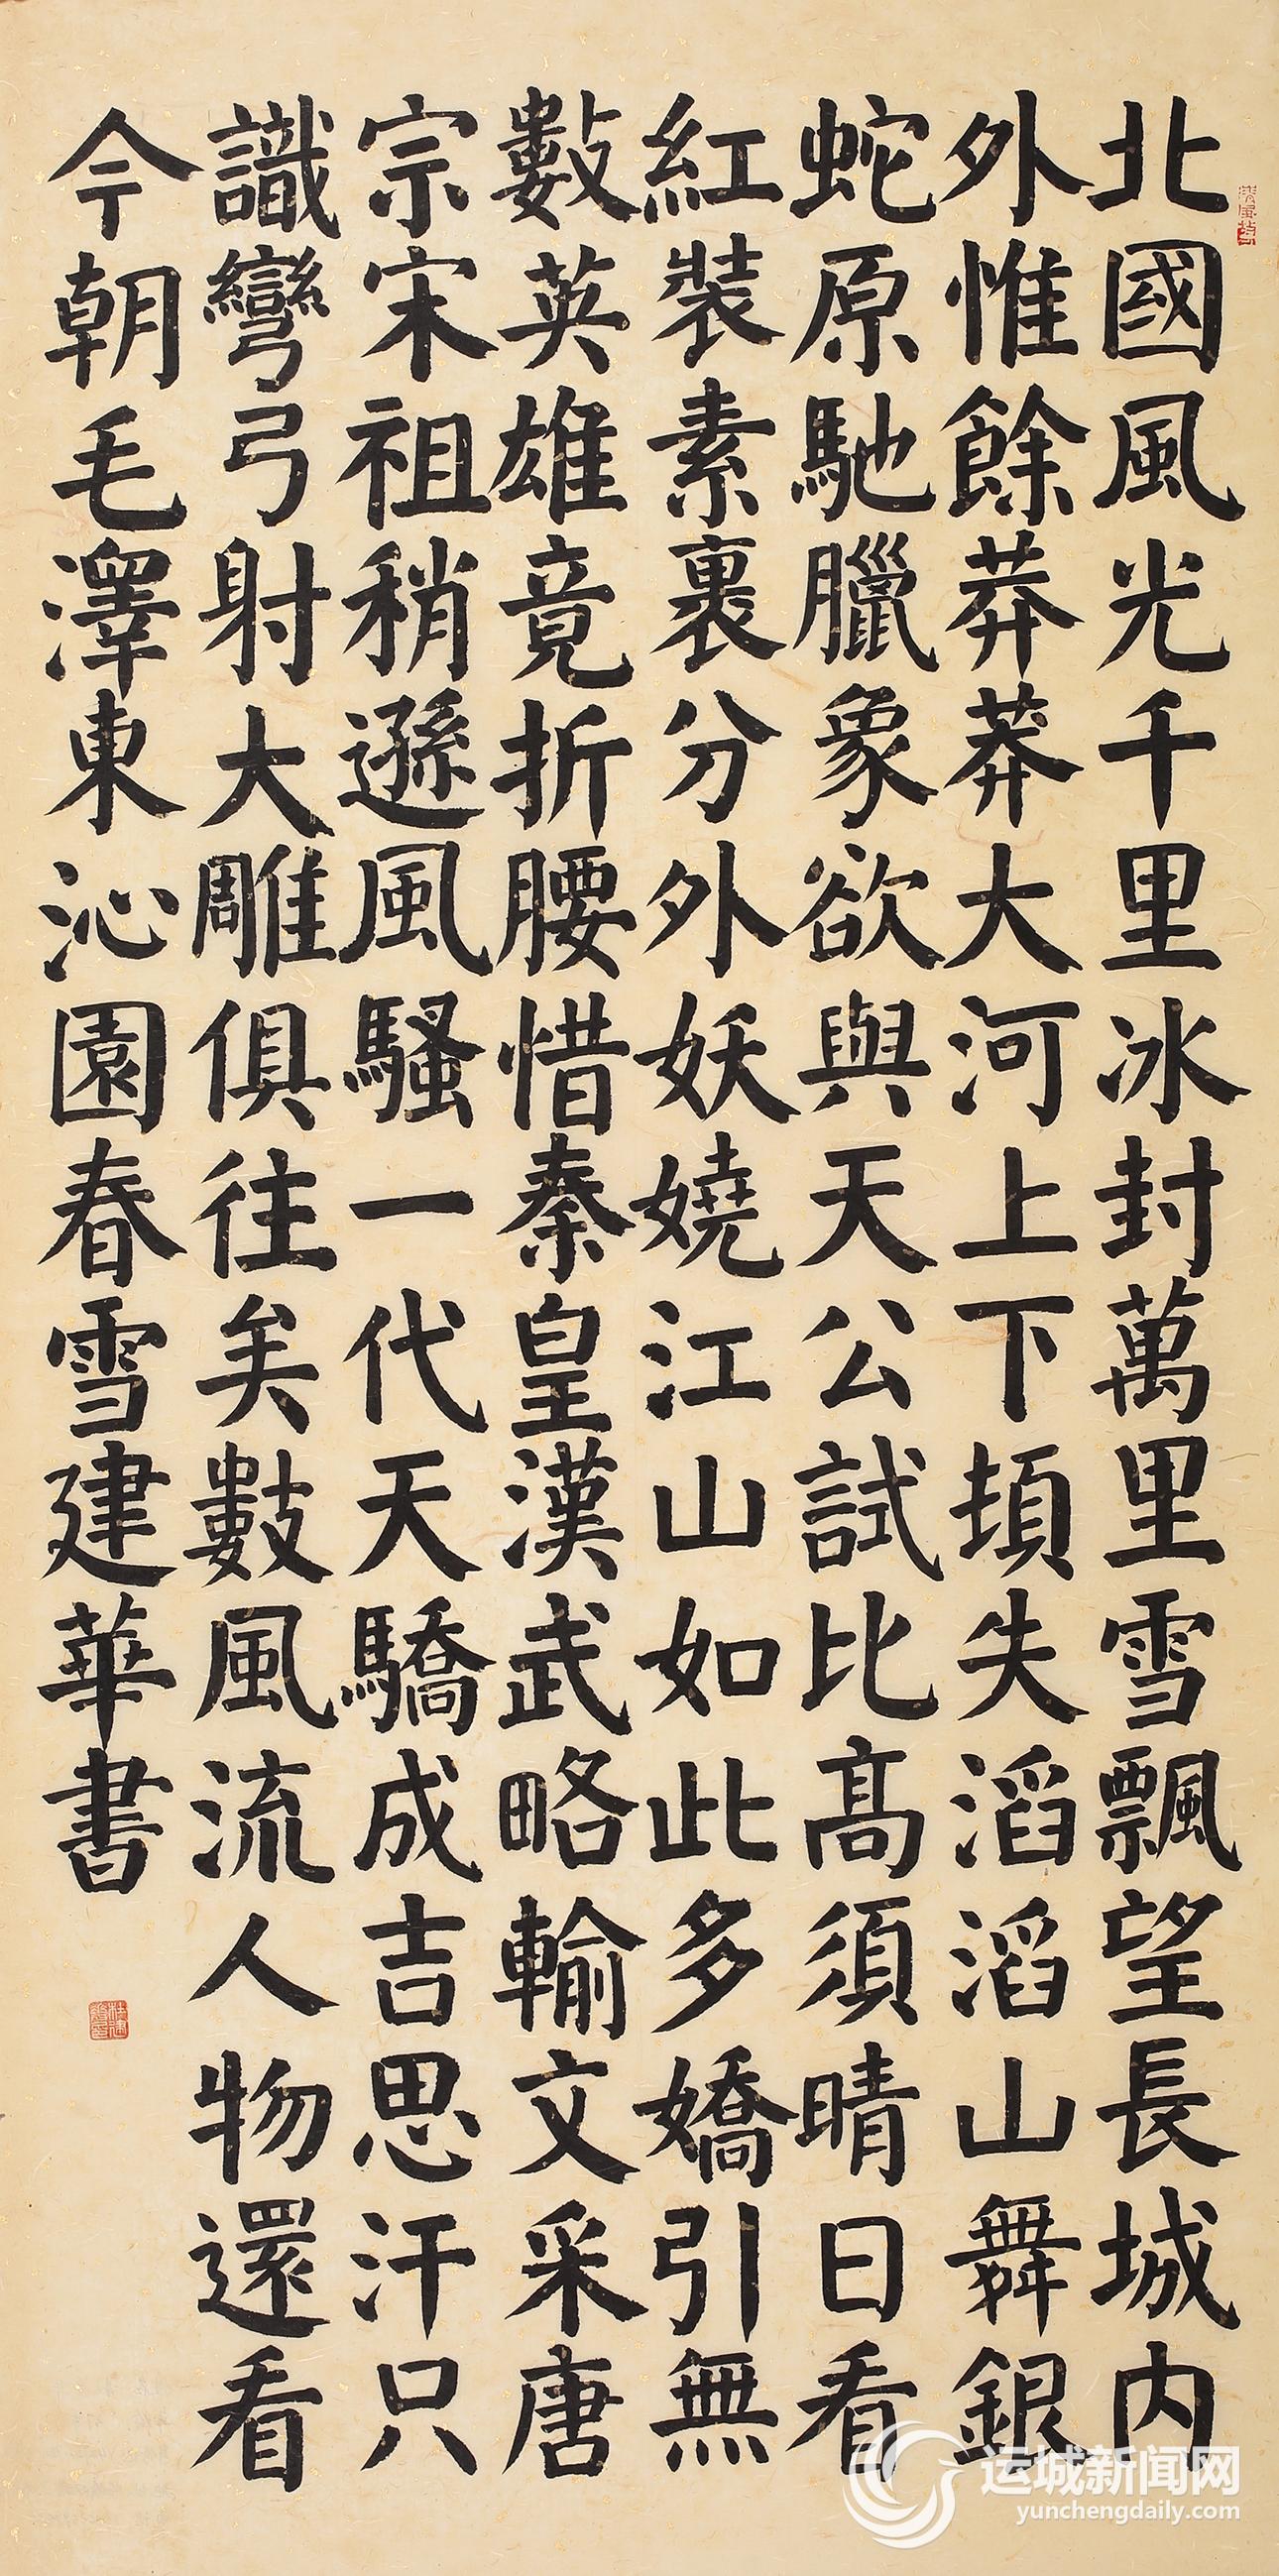 北國風光千里冰封萬里雪飄望長城内
外惟餘莽莽大河上下頓失滔滔山舞銀
蛇原馳臘象欲與天公試比髙須晴日看
紅裝素裹分外妖嬈江山如此多嬌引無
數英雄竟折腰惜秦皇漢武略輸文采唐
宗宋祖稍遜風騷一代天驕成吉思汗只
識彎弓射大雕俱往矣數風流人物還看
今朝毛澤東沁園春雪建華書
运城新闻网
yunchengdaily.com